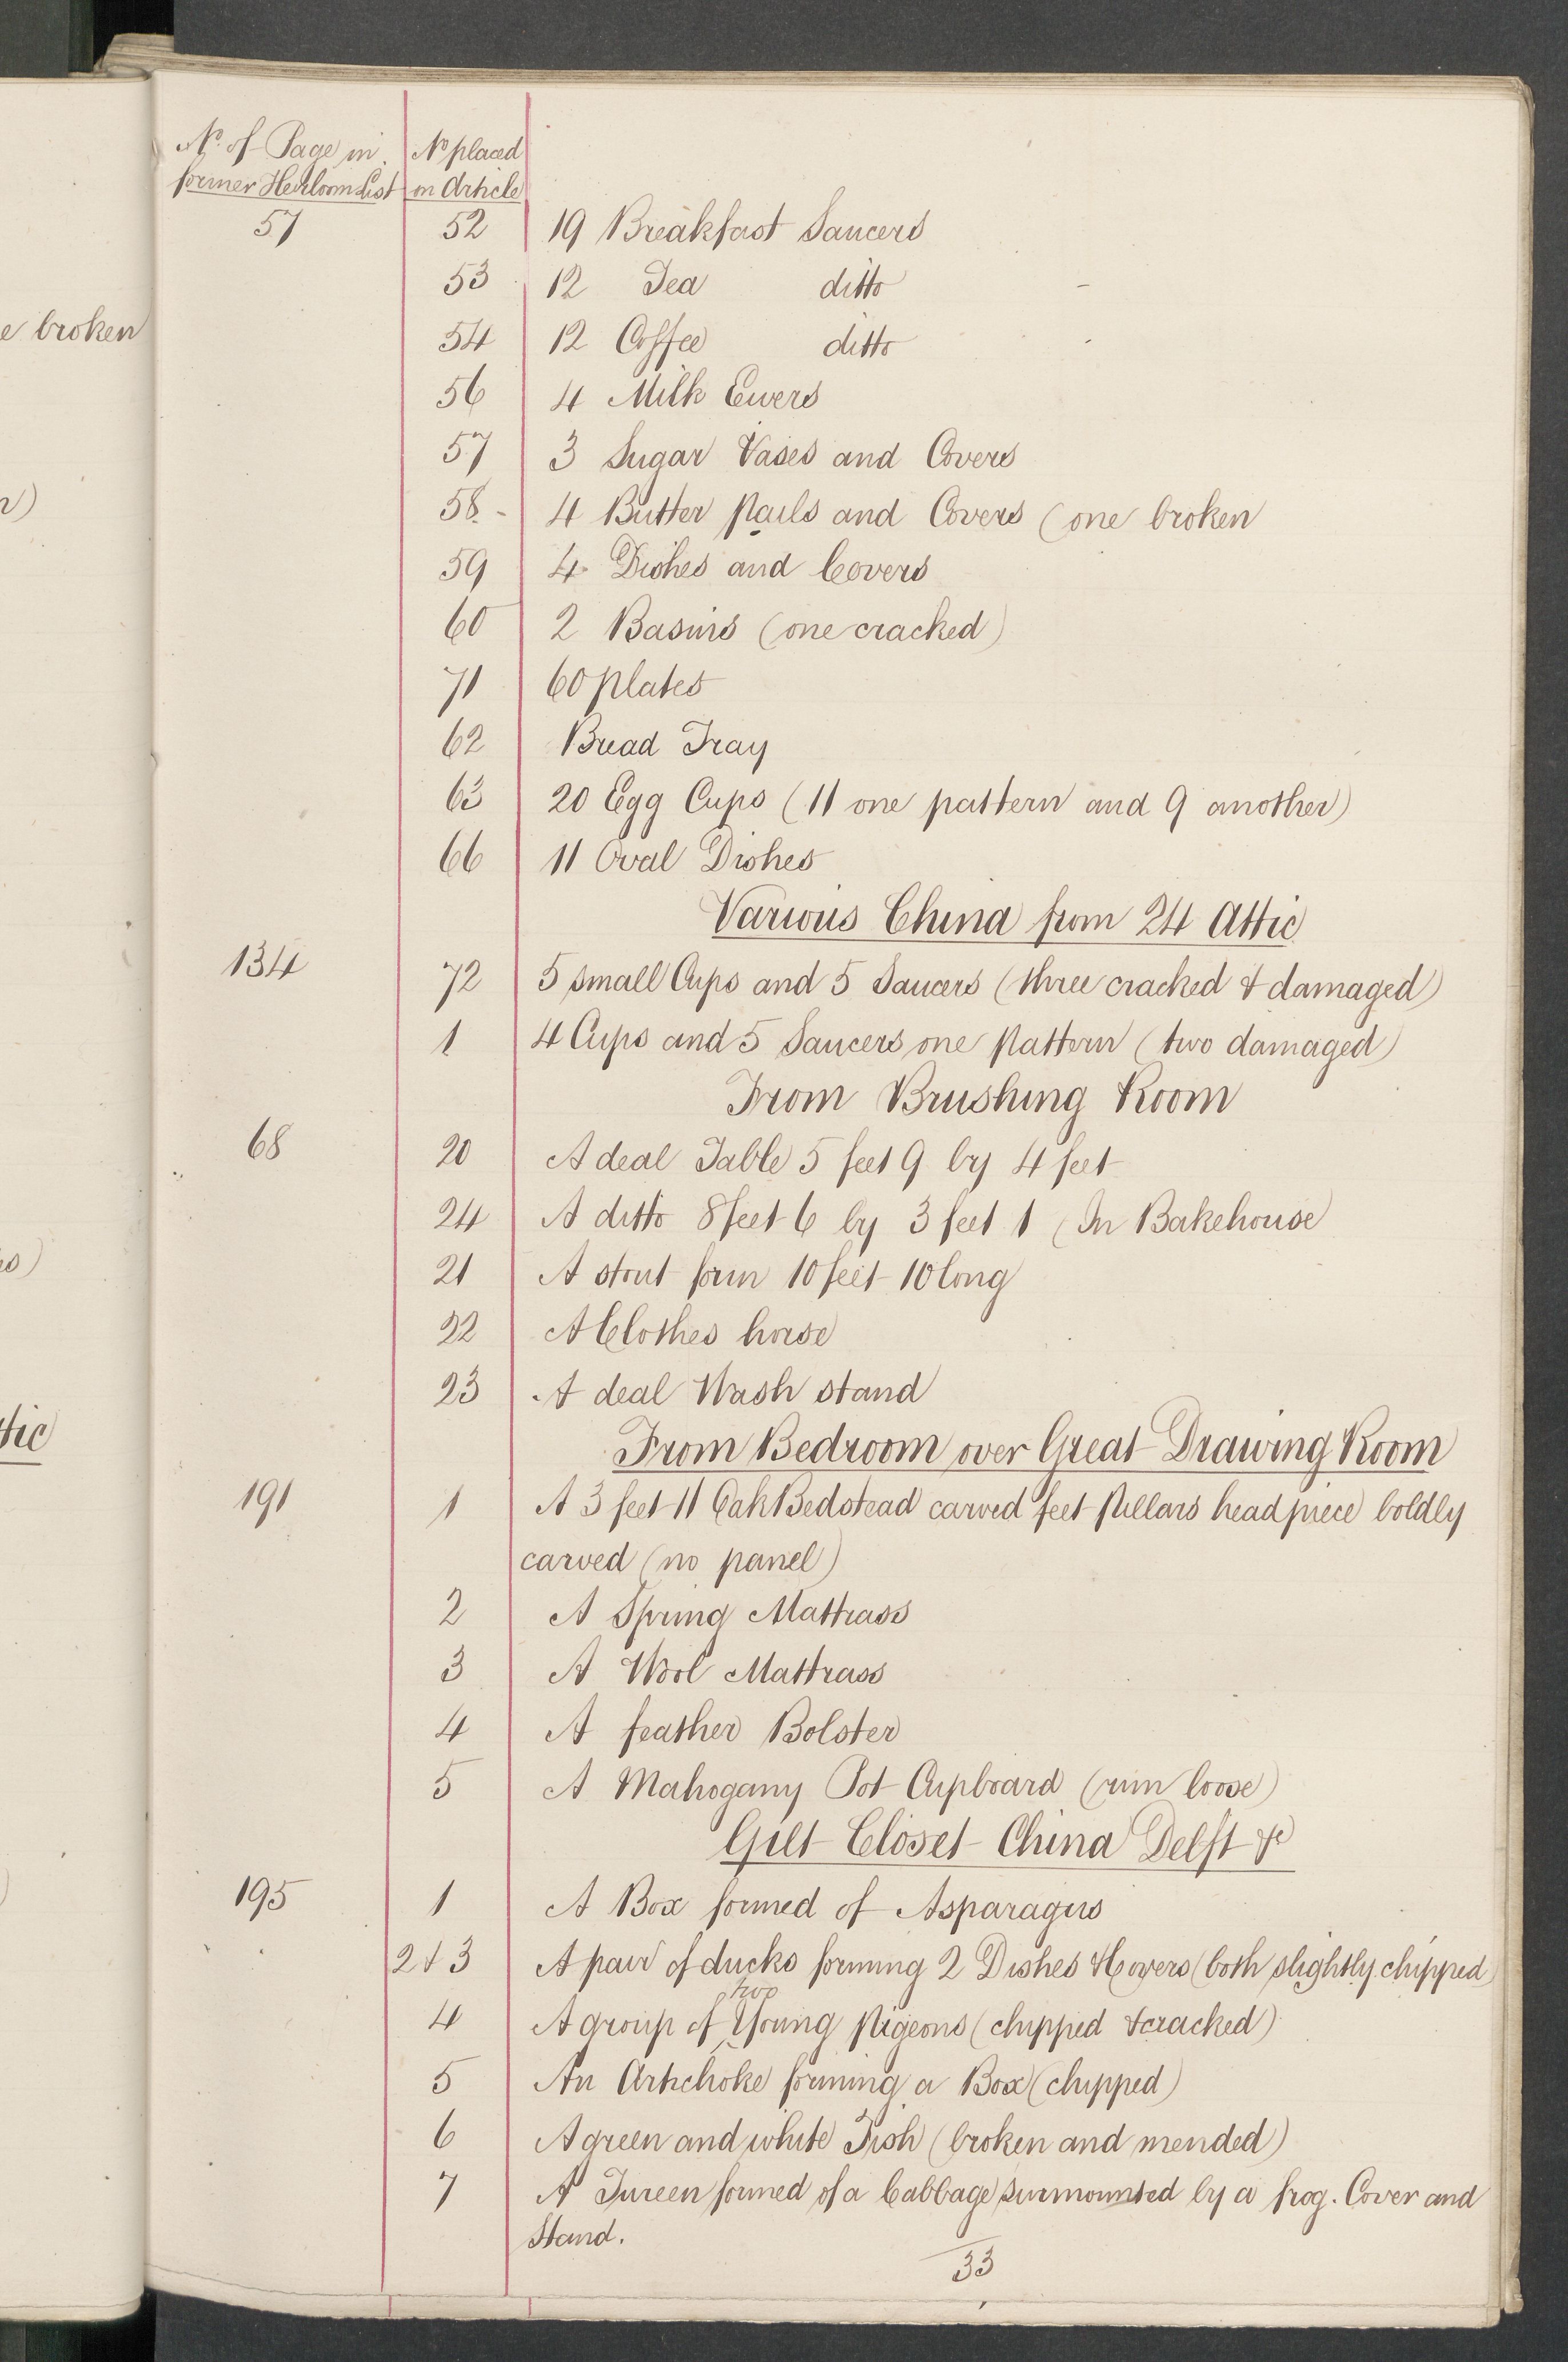 e broken
n)
es)
tic
)
No. of Page in former Heirloom List | No placed on Article
57 52 19 Breakfast Saucers
53 12 Tea ditto
54 12 Coffee ditto
56 4 Milk Ewers
57 3 Sugar Vases and Covers
58 - 4 Butter pails and Covers (one broken
59 4 Dishes and Covers
60 2 Basins (one cracked)
71 60 plates
62 Bread Tray
63 20 Egg Cups (11 one pattern and 9 another)
66 11 Oval Dishes
Various China from 24 Attic
134 72 5 small Cups and 5 Saucers (three cracked & damaged)
1 4 Cups and 5 Saucers one pattern (two damaged)
From Brushing Room
68 20 A deal Table 5 feet 9 by 4 feet
24 A ditto 8 feet 6 by 3 feet 1 (In Bakehouse
21 A stout form 10 feet 10 long
22 A Clothes horse
23 A deal Wash stand
From Bedroom over Great Drawing Room
191 1 A 3 feet 11 Oak Bedstead carved feet pillars head piece boldly
carved (no panel)
2 A Spring Mattrass
3 A Wool Mattrass
4 A feather Bolster
5 A Mahogany Pot Cupboard (rim loose)
Gilt Closet China Delft &c
195 1 A Box formed of Asparagus
2 & 3 A pair of ducks forming 2 Dishes & Covers (both slightly chipped)
4 A group of two Young pigeons (chipped & cracked)
5 An Artichoke forming a Box (chipped)
6 A green and white Fish (broken and mended)
7 A Tureen formed of a Cabbage surmounted by a frog. Cover and
Stand.
33